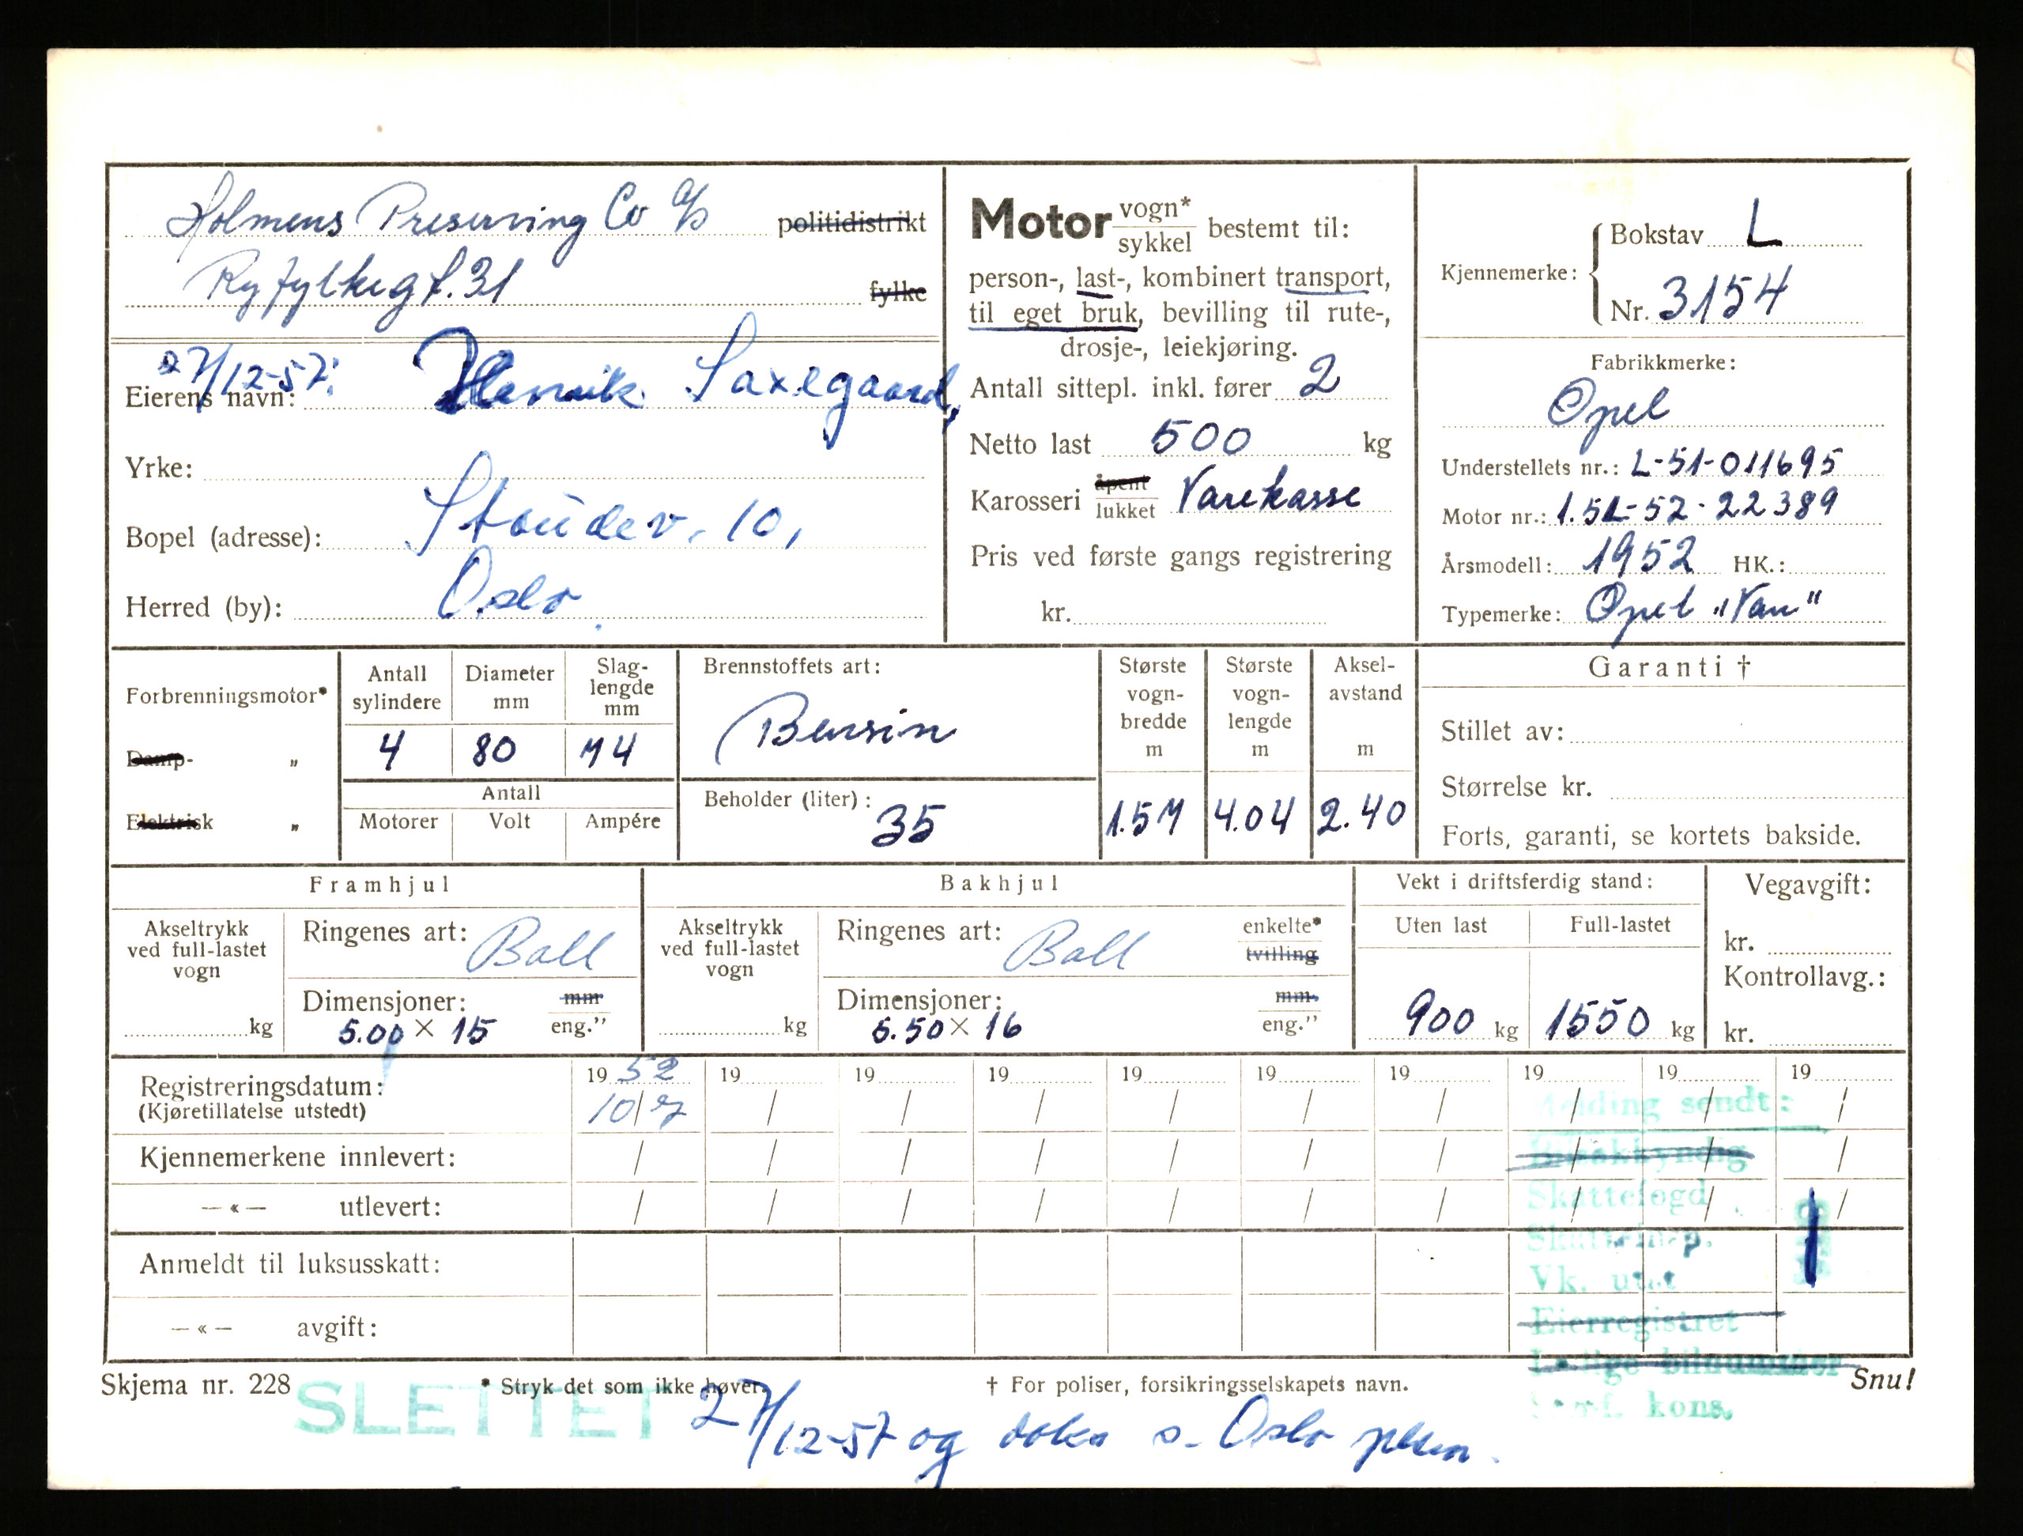 Holmens Preserving Co a/s politidistrikt
Ryfylkegt. 31 fylke
27/12-57:
Eierens navn: Henrik Saxegaard,
Yrke:
Bopel (adresse): Staudev. 10,
Herred (by): Oslo
Motor vogn* sykkel bestemt til:
person-, last-, kombinert transport,
til eget bruk, bevilling til rute-,
drosje-, leiekjøring.
Antall sittepl. inkl. fører 2
Netto last 500 kg
Karosseri åpent lukket Varekasse
Pris ved første gangs registrering
kr.
Kjennemerke: Bokstav L
Nr. 3154
Fabrikkmerke:
Opel
Understellets nr.: L-51-011695
Motor nr.: 1.5L-52-22389
Årsmodell: 1952 HK.:
Typemerke: Opel "Van"
Forbrenningsmotor*
Damp- „
Elektrisk „
Antall sylindere
4
Diameter mm
80
Slag-lengde mm
74
Antall
Motorer Volt Ampére
Brennstoffets art:
Bensin
Beholder (liter):
35
Største vogn-bredde m
1.57
Største vogn-lengde m
4.04
Aksel-avstand m
2.40
Garanti †
Stillet av:
Størrelse kr.
Forts. garanti, se kortets bakside.
Framhjul
Akseltrykk ved full-lastet vogn
kg
Ringenes art: Ball
Dimensjoner: mm
5.00 × 15 eng."
Bakhjul
Akseltrykk ved full-lastet vogn
kg
Ringenes art: Ball enkelte* tvilling
Dimensjoner: mm.
5.50 × 16 eng."
Vekt i driftsferdig stand:
Uten last Full-lastet
900 kg 1550 kg
Vegavgift:
kr.
Kontrollavg.:
kr.
Registreringsdatum: 19 52 19 19 19 19 19 19 19 19 19
(Kjøretillatelse utstedt) 10/7 / / / / / / / / /
Kjennemerkene innlevert: / / / / / / / / / /
—«— utlevert: / / / / / / / / / /
Anmeldt til luksusskatt:
—«— avgift:
Melding sendt:
Bilsakkyndig
Skattefogd
Skatteinsp.
Vk. utst
Eierregistret
Ledige bilnummer
kons.
Skjema nr. 228 * Stryk det som ikke høver. † For poliser, forsikringsselskapets navn. Snu!
SLETTET 27/12-57 og s. Oslo